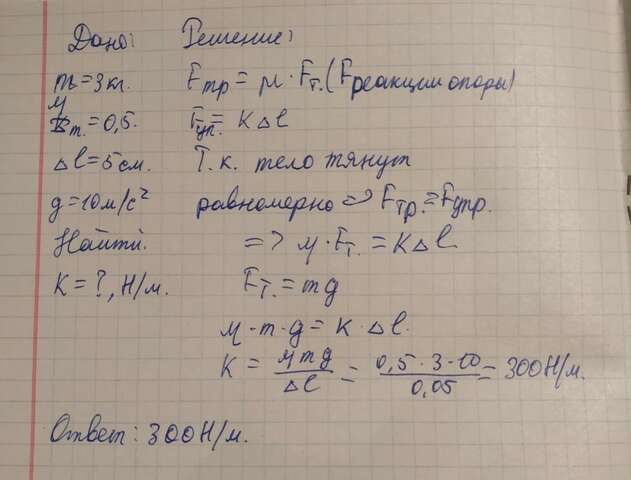 Дано: Решение:
m = 3 кг. Fтр = μ · Fт. (Fреакции опоры)
μ т. = 0,5. Fуп. = K Δl
Δl = 5 см. Т.к. тело тянут
g = 10 м/с² равномерно => Fтр. = Fупр.
Найти. => μ · Fт. = K Δl
K = ?, Н/м. Fт. = mg
μ · m · g = K · Δl.
K = μmg / Δl = 0,5 · 3 · 10 / 0,05 = 300 Н/м.
Ответ: 300 Н/м.